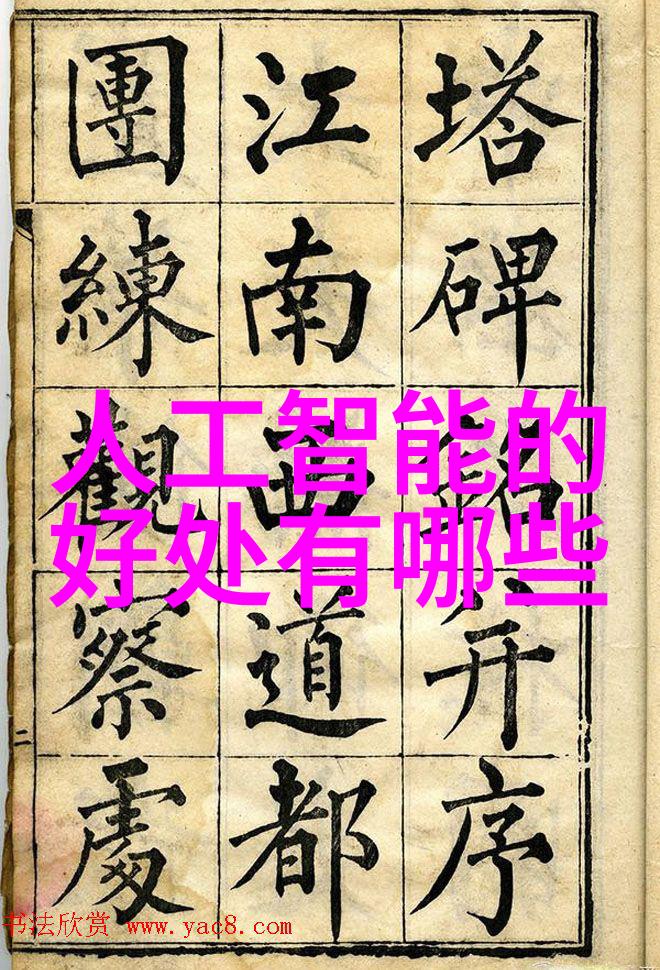 塔碑銘并序
江南西道都
團練觀察處
二
人工智能的
好处有哪些
书法欣赏 www.yac8.com